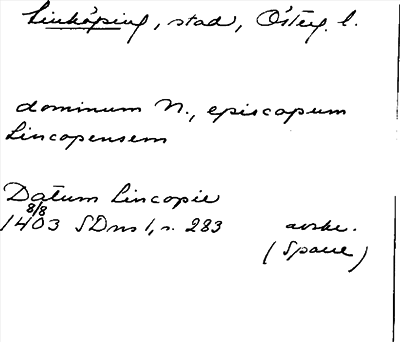 Linköping, stad, Österg. l.
dominum N., episcopum
Lincopensem
Datum Lincopie
8/8
1403 SDns 1, s. 283 avskr.
(Spaue)